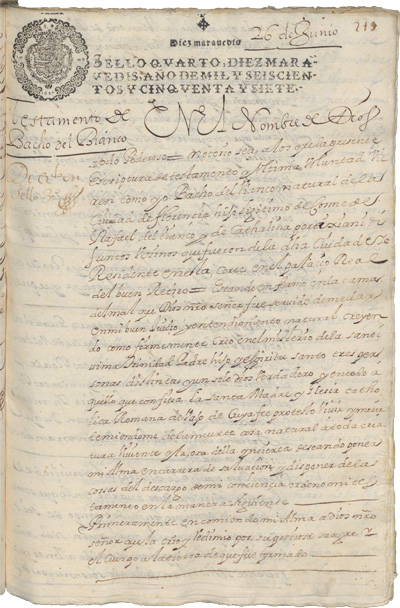 Diez maravedis
26 de Junio
219
SELLO QVARTO, DIEZ MARA
VEDIS, AÑO DE MIL Y SEISCIEN
TOS Y CINQVENTA Y SIETE.
Testamento de
Bacho del Bianco
En el Nombre de Dios
todo Poderoso = notorio sea a los que la presente
escriptura de testamento y ultima voluntad vi
eren como yo Bacho del Vianco natural de la
Ciudad de florencia hijo lexitimo de Cosme de
Rafael del Vianco y de Cathalina
juntos Vezinos que fueron de la dha Ciudad =
Residente en esta Corte en el palacio Real
del buen Retiro = estando enfermo en la cama
del mal que Dios nro señor fue servido de me dar
en mi buen Juicio y entendimiento natural creyen
do como firmemente Creo en el misterio de la santi
sima trinidad Padre hijo y espiritu santo tres per
sonas distintas y un solo dios verdadero y en todo a
quello que confiesa la santa Madre yglesia catho
lica Romana devajo de cuya fee protesto vivir y morir
temiendome de la muerte cosa natural a toda cria
tura viviente y la ora della yncierta deseando poner
mi Alma en carrera de salvacion y disponer de las
cosas del descargo de mi conciencia ordeno mi tes
tamento en la manera siguiente
Primeramente encomiendo mi Alma a dios nro
señor que la crio y redimio por su preciosa sangre y
el Cuerpo a la tierra de que fue formado